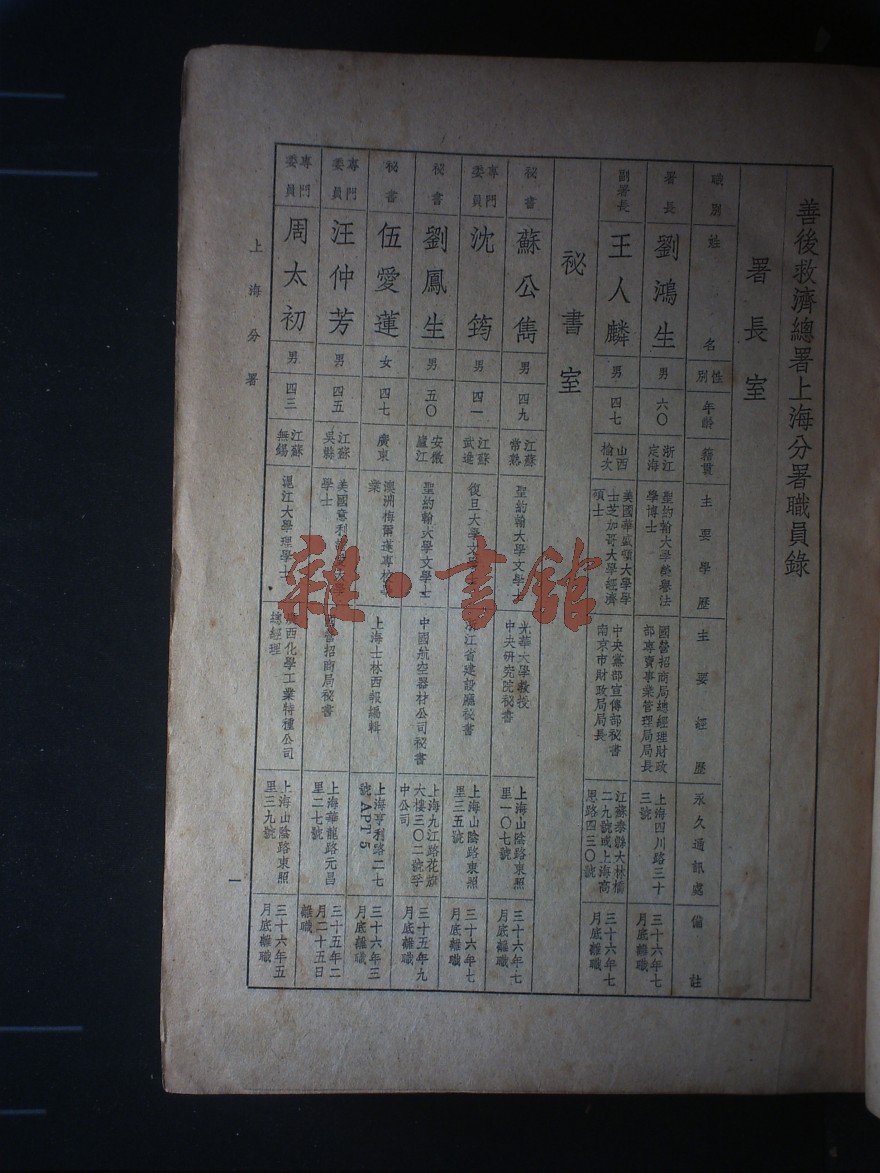 善後救濟總署上海分署職員錄
署長室
職別
姓名
性別
年齡
籍貫
主要學歷
主要經歷
永久通訊處
備註
署長
劉鴻生
男
六〇
浙江
定海
聖約翰大學榮譽法
學博士
國營招商局總經理財政
部專賣事業管理局局長
上海四川路三十
三號
三十六年七
月底離職
副署長
王人麟
男
四七
山西
榆次
美國華盛頓大學學
士芝加哥大學經濟
碩士
中央黨部宣傳部秘書
南京市財政局局長
江蘇泰縣大林橋
二九號或上海高
恩路四三〇號
三十六年七
月底離職
秘書室
秘書
蘇公雋
男
四九
江蘇
常熟
聖約翰大學文學士
光華大學教授
中央研究院秘書
上海山陰路東照
里一〇七號
三十六年七
月底離職
專門
委員
沈筠
男
四一
江蘇
武進
復旦大學文學士
浙江省建設廳秘書
上海山陰路東照
里三五號
三十六年七
月底離職
秘書
劉鳳生
男
五〇
安徽
廬江
聖約翰大學文學士
中國航空器材公司秘書
上海九江路花旗
大樓三〇二號孚
中公司
三十五年九
月底離職
秘書
伍愛蓮
女
四七
廣東
澳洲梅爾蓬專校畢
業
上海士林西報編輯
上海亨利路二七
號APT 5
三十六年三
月底離職
專門
委員
汪仲芳
男
四五
江蘇
吳縣
美國意利諾愛大學
學士
國營招商局秘書
上海華龍路元昌
里二七號
三十五年二
月二十五日
離職
專門
委員
周太初
男
四三
江蘇
無錫
滬江大學理學士
廣西化學工業特種公司
總經理
上海山陰路東照
里三九號
三十六年五
月底離職
上海分署
一
雜·書館